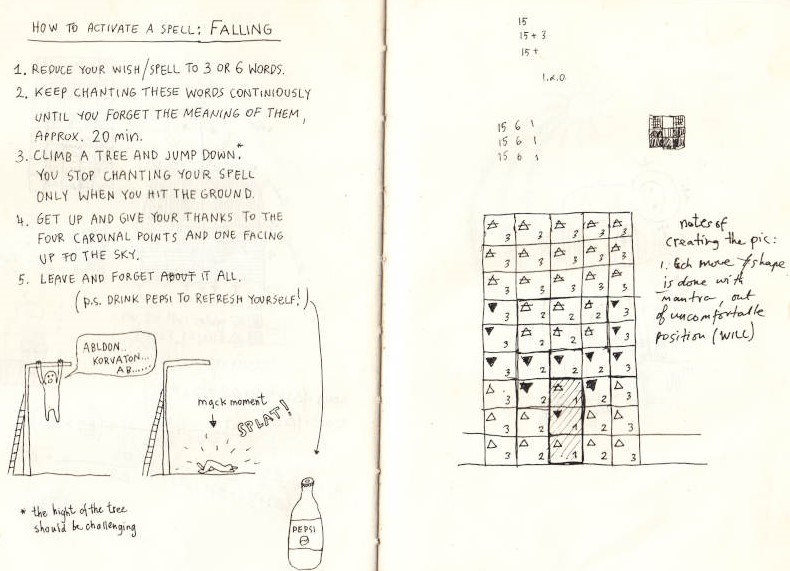 HOW TO ACTIVATE A SPELL: FALLING
1. REDUCE YOUR WISH/SPELL TO 3 OR 6 WORDS.
2. KEEP CHANTING THESE WORDS CONTINIOUSLY
UNTIL YOU FORGET THE MEANING OF THEM,
APPROX. 20 min.
3. CLIMB A TREE AND JUMP DOWN.*
YOU STOP CHANTING YOUR SPELL
ONLY WHEN YOU HIT THE GROUND.
4. GET UP AND GIVE YOUR THANKS TO THE
FOUR CARDINAL POINTS AND ONE FACING
UP TO THE SKY.
5. LEAVE AND FORGET ABOUT IT ALL.
(p.s. DRINK PEPSI TO REFRESH YOURSELF!)
ABLDON..
KORVATON...
AB......
magick moment
SPLAT!
* the hight of the tree
should be challenging
PEPSI
15
15 + 3
15 +
15 6 1
15 6 1
15 6 1
3 2 2 2 3
3 3 3 3 3
3 3 3 3 3
3 2 2 2 3
3 2 2 2 3
3 2 2 2 3
3 2 1 2 3
3 2 1 2 3
3 2 1 2 3
notes of
creating the pic:
1. Ech move / shape
is done with
mantra, out
of uncomfortable
position (WILL)